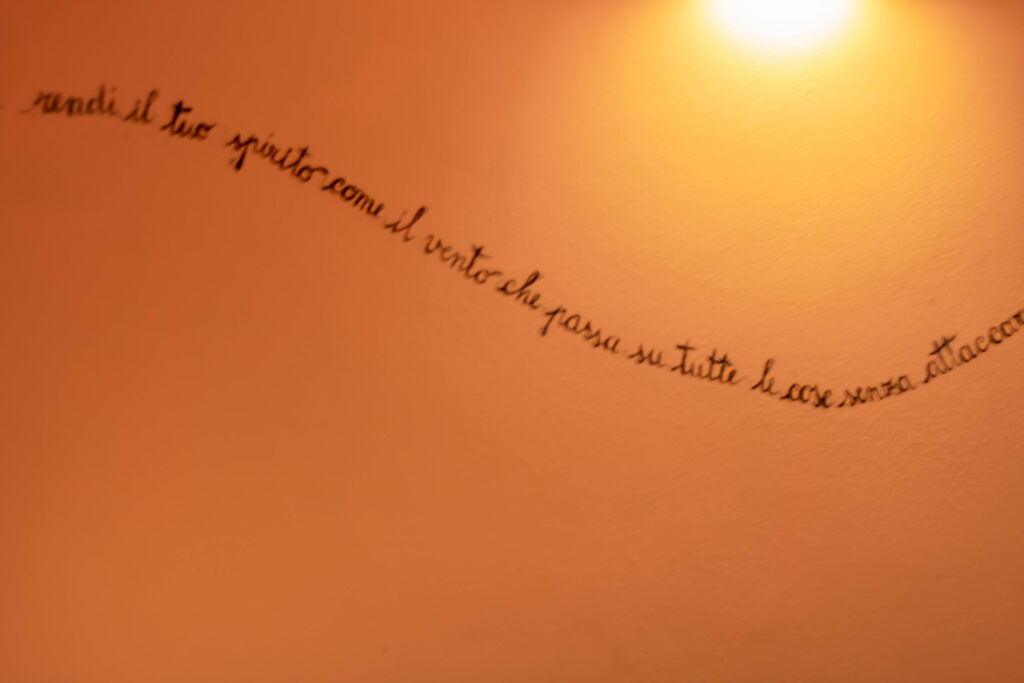 rendi il tuo spirito come il vento che passa su tutte le cose senza attaccar